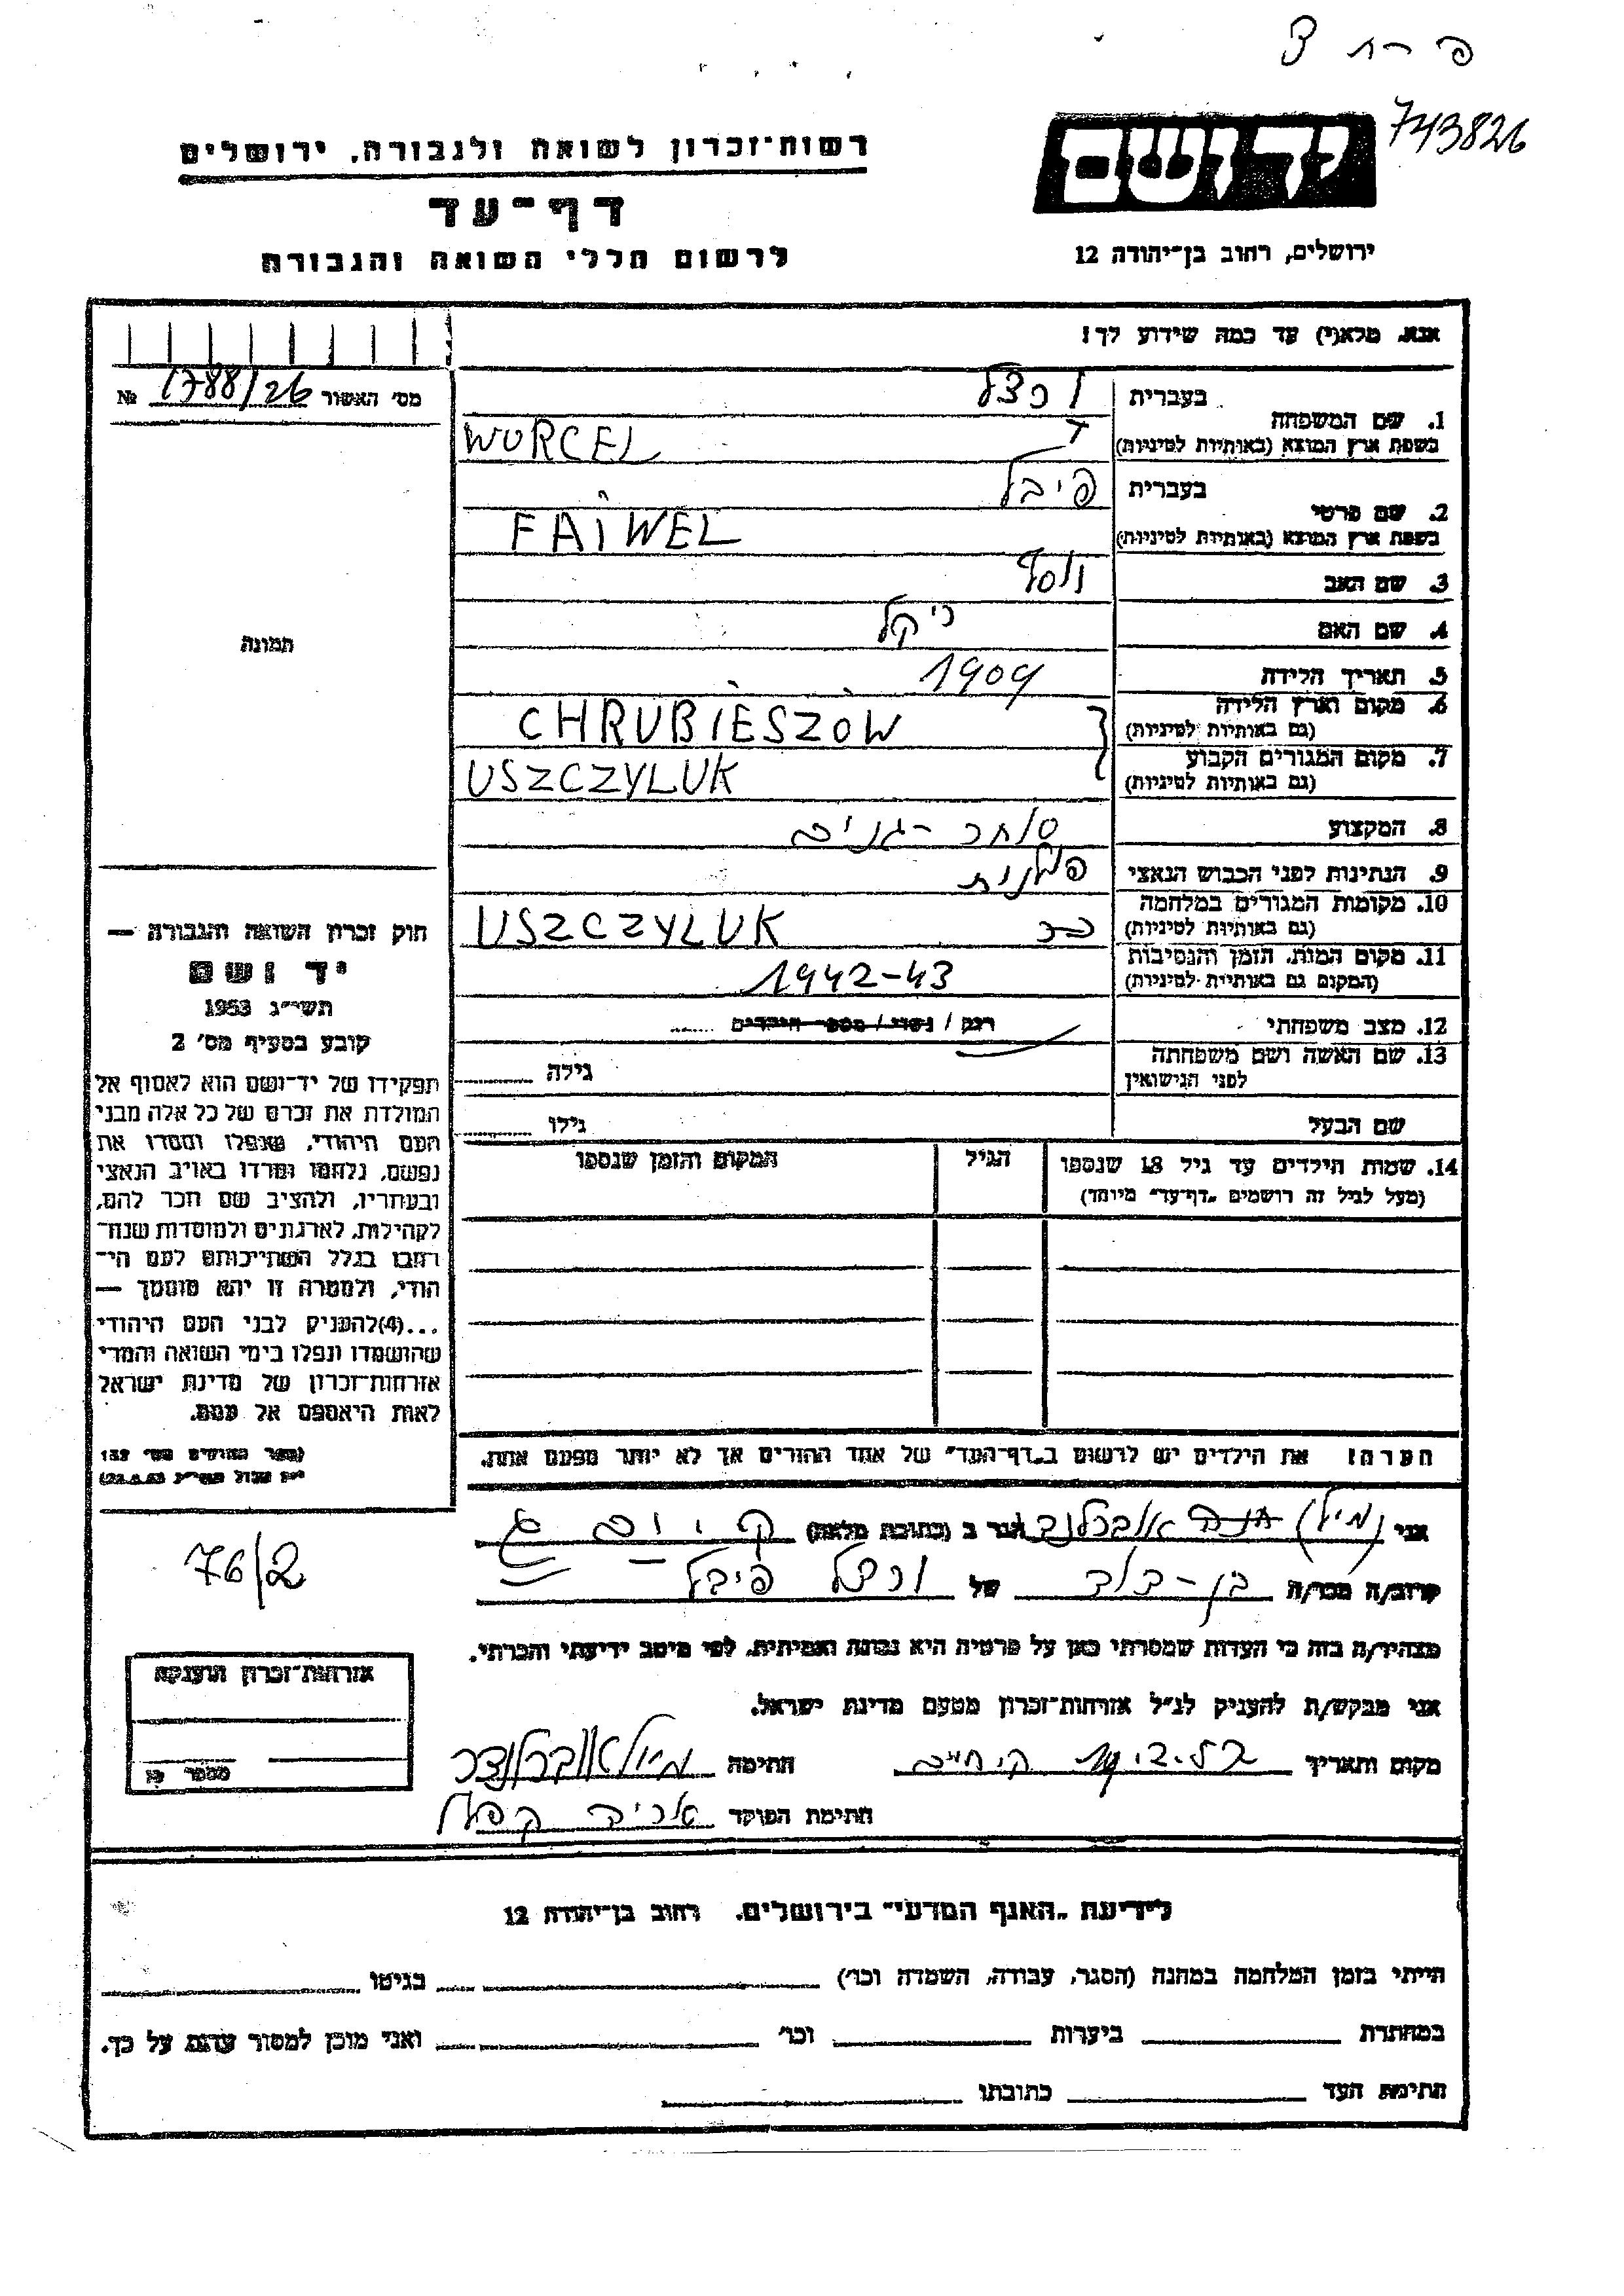 743826
ידושם
ירושלים, רחוב בן־יהודה 12
רשות־זכרון לשואה ולגבורה, ירושלים
דף־עד
לרשום חללי השואה והגבורה
אנא, מלא(י) עד כמה שידוע לך!
מס׳ האשור 1788/26 №
תמונה
1. שם המשפחה בעברית ורצל
בשפת ארץ המוצא (באותיות לטיניות) WURCEL
2. שם פרטי בעברית פיבל
בשפת ארץ המוצא (באותיות לטיניות) FAIWEL
3. שם האב יוסף
4. שם האם ריקל
5. תאריך הלידה 1909
6. מקום וארץ הלידה
(גם באותיות לטיניות) CHRUBIESZOW
7. מקום המגורים הקבוע
(גם באותיות לטיניות) USZCZYLUK
8. המקצוע סוחר
9. הנתינות לפני הכבוש הנאצי פולנית
10. מקומות המגורים במלחמה
(גם באותיות לטיניות) USZCZYLUK
11. מקום המות, הזמן והנסיבות
(המקום גם באותיות לטיניות) 1942-43
12. מצב משפחתי רוק / נשוי / מספר הילדים
13. שם האשה ושם משפחתה
לפני הנישואין גילה
שם הבעל גילו
14. שמות הילדים עד גיל 18 שנספו הגיל המקום והזמן שנספו
(מעל לגיל זה רושמים „דף־עד״ מיוחד)
הערה: את הילדים יש לרשום ב„דף־העד״ של אחד ההורים אך לא יותר מפעם אחת.
חוק זכרון השואה והגבורה —
יד ושם
תשי״ג 1953
קובע בסעיף מס׳ 2
תפקידו של יד־ושם הוא לאסוף אל
המולדת את זכרם של כל אלה מבני
העם היהודי, שנפלו ומסרו את
נפשם, נלחמו ומרדו באויב הנאצי
ובעוזריו, ולהציב שם וזכר להם,
לקהילות, לארגונים ולמוסדות שנח־
רבו בגלל השתייכותם לעם הי־
הודי, ולמטרה זו יהא מוסמך —
...(4) להעניק לבני העם היהודי
שהושמדו ונפלו בימי השואה והמרי
אזרחות־זכרון של מדינת ישראל
לאות היאספם אל עמם.
(ספר החוקים מס׳ 132
76/2
אני הגר ב (כתובת מלאה)
קרוב/ה מכר/ה בן-דוד של ורצל פיבל
מצהיר/ה בזה כי העדות שמסרתי כאן על פרטיה היא נכונה ואמיתית, לפי מיטב ידיעתי והכרתי.
אני מבקש/ת להעניק לנ״ל אזרחות־זכרון מטעם מדינת ישראל.
מקום ותאריך חתימה
חתימת הפוקד אריה
אזרחות־זכרון הוענקה
מספר
לידיעת „האגף המדעי״ בירושלים, רחוב בן־יהודה 12
הייתי בזמן המלחמה במחנה (הסגר, עבודה, השמדה וכו׳) בגיטו
במחתרת ביערות וכו׳ ואני מוכן למסור עדות על כך.
חתימת העד כתובתו